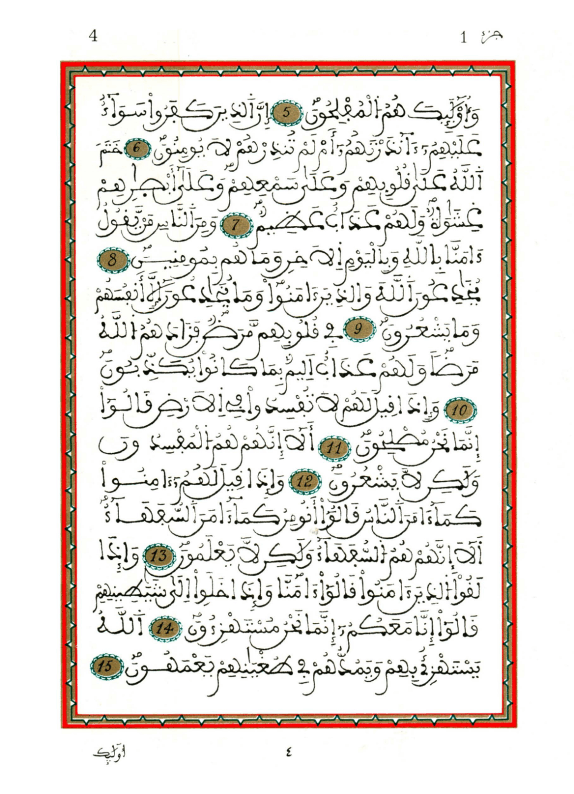 4
جزء 1
وَأُوْلَٰئِكَ هُمُ الْمُفْلِحُونَ 5 إِنَّ الَّذِينَ كَفَرُوا سَوَآءٌ
عَلَيْهِمُۥٓ ءَآنذَرْتَهُمُۥٓ أَمْ لَمْ تُنذِرْهُمْ لَا يُومِنُونَ 6 خَتَمَ
اَللَّهُ عَلَىٰ قُلُوبِهِمْ وَعَلَىٰ سَمْعِهِمْ وَعَلَىٰ أَبْصَٰرِهِمْ
غِشَٰوَةٌ وَلَهُمْ عَذَابٌ عَظِيمٌ 7 وَمِنَ النَّاسِ مَنْ يَّقُولُ
ءَامَنَّا بِاللَّهِ وَبِالْيَوْمِ اِلَاخِرِ وَمَا هُم بِمُومِنِينَ 8
يُخَٰدِعُونَ اَللَّهَ وَالَّذِينَ ءَامَنُوا وَمَا يُخَٰدِعُونَ إِلَّا أَنفُسَهُمْ
وَمَا يَشْعُرُونَ 9 فِي قُلُوبِهِم مَّرَضٌ فَزَادَهُمُ اللَّهُ
مَرَضاً وَلَهُمْ عَذَابٌ اَلِيمٌ بِمَا كَانُوا يُكَذِّبُونَ
10 وَإِذَا قِيلَ لَهُمْ لَا تُفْسِدُوا فِي اِلَارْضِ قَالُوٓا
إِنَّمَا نَحْنُ مُصْلِحُونَ 11 أَلَآ إِنَّهُمْ هُمُ الْمُفْسِدُونَ
وَلَٰكِن لَّا يَشْعُرُونَ 12 وَإِذَا قِيلَ لَهُمُۥٓ ءَامِنُوا
كَمَآ ءَامَنَ النَّاسُ قَالُوٓا أَنُومِنُ كَمَآ ءَامَنَ السُّفَهَآءُ
أَلَآ إِنَّهُمْ هُمُ السُّفَهَآءُ وَلَٰكِن لَّا يَعْلَمُونَ 13 وَإِذَا
لَقُوا الَّذِينَ ءَامَنُوا قَالُوٓا ءَامَنَّا وَإِذَا خَلَوِا اِلَىٰ شَيَٰطِينِهِمْ
قَالُوٓا إِنَّا مَعَكُمُۥٓ إِنَّمَا نَحْنُ مُسْتَهْزِءُونَ 14 اَللَّهُ
يَسْتَهْزِئُ بِهِمْ وَيَمُدُّهُمْ فِي طُغْيَٰنِهِمْ يَعْمَهُونَ 15
أُوْلَٰئِكَ
٤